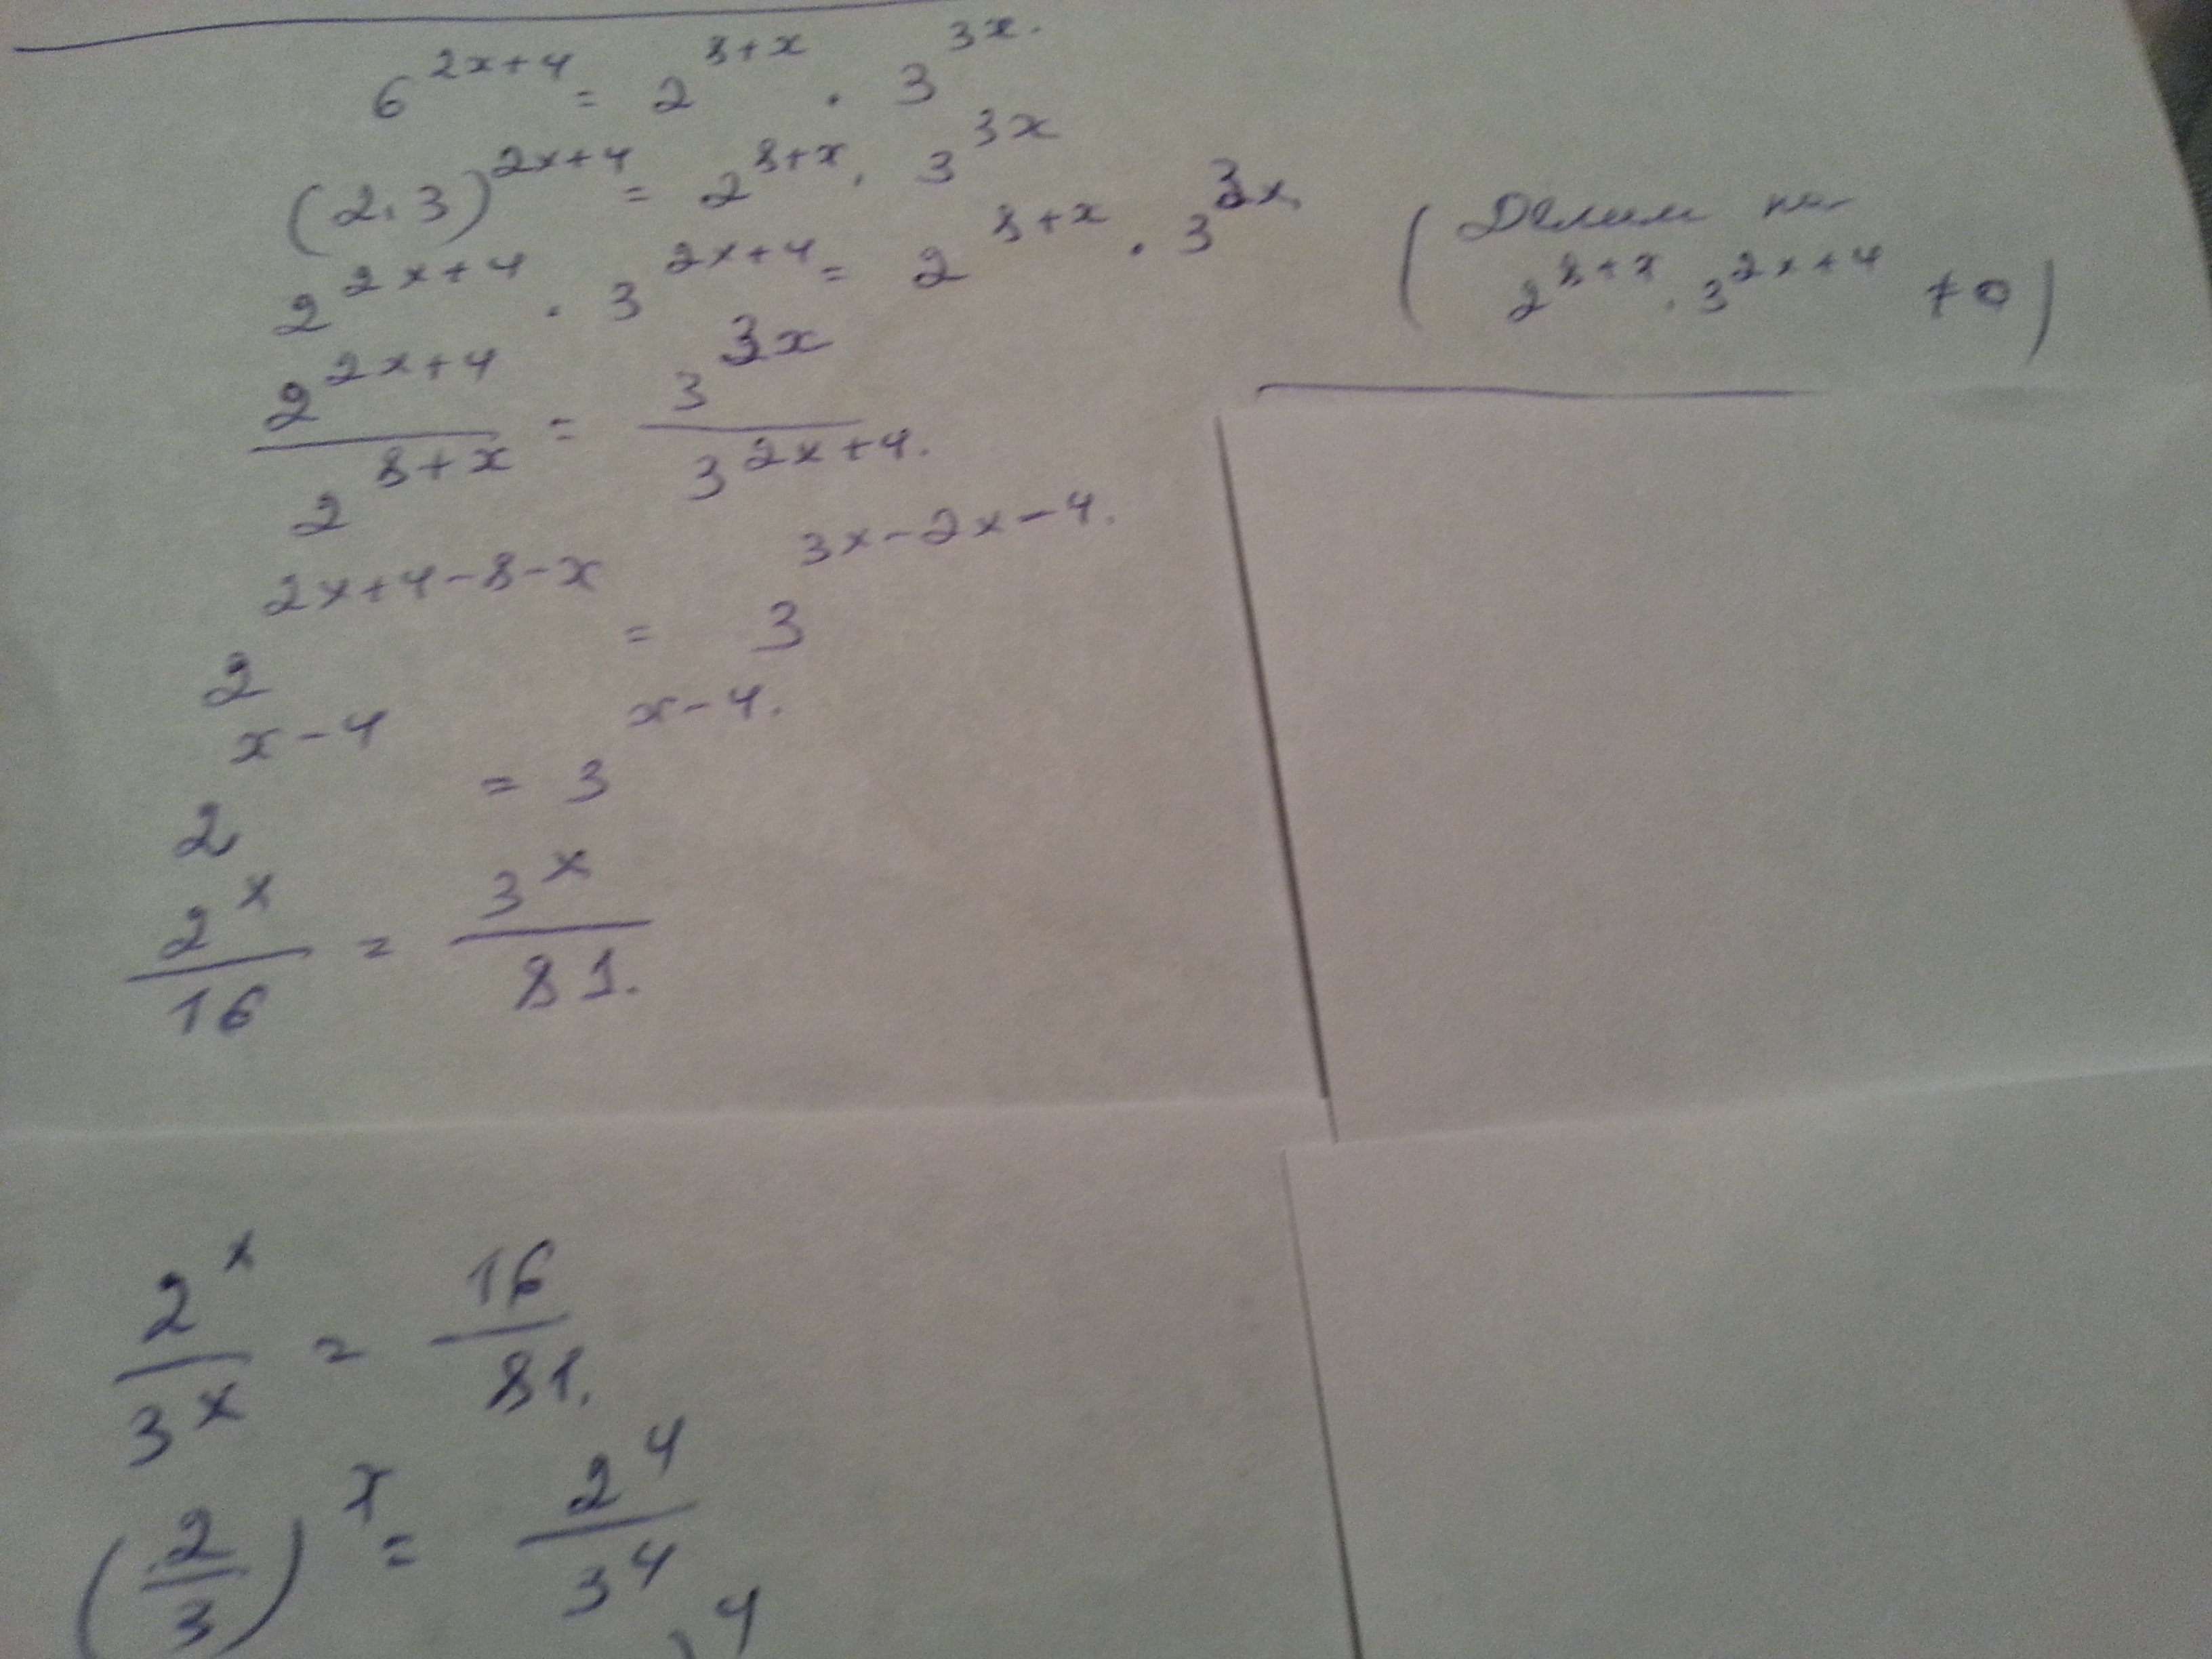 6^(2x+4) = 2^(8+x) · 3^(3x).
(2·3)^(2x+4) = 2^(8+x) · 3^(3x)
2^(2x+4) · 3^(2x+4) = 2^(8+x) · 3^(3x)
(Делим на
2^(8+x) · 3^(2x+4) ≠ 0)
2^(2x+4) / 2^(8+x) = 3^(3x) / 3^(2x+4).
2^(2x+4-8-x) = 3^(3x-2x-4).
2^(x-4) = 3^(x-4).
2^x / 16 = 3^x / 81.
2^x / 3^x = 16 / 81.
(2/3)^x = 2^4 / 3^4
)^4